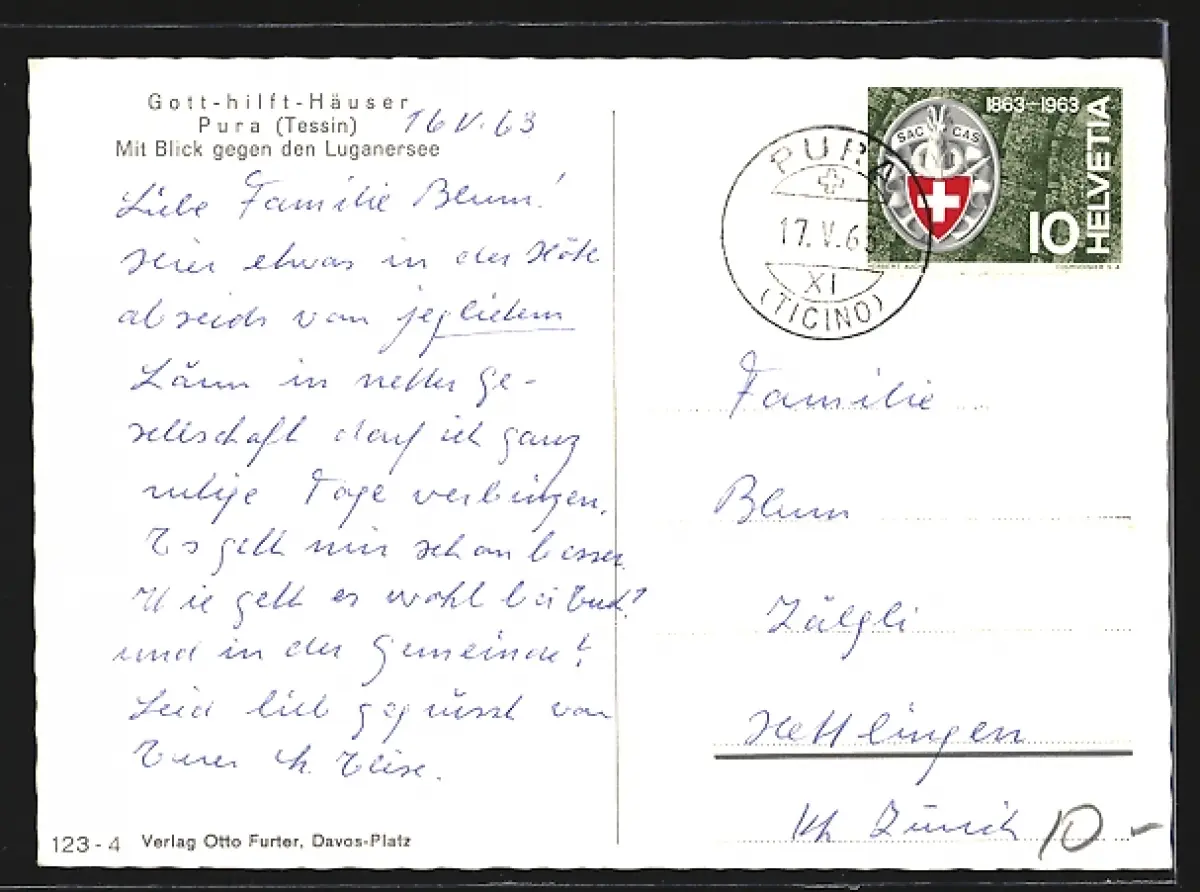 Gott-hilft-Häuser
Pura (Tessin)
16 V. 63
Mit Blick gegen den Luganersee
Liebe Familie Blum!
Hier etwas in der Höhe
abseids von jeglichem
Lärm in netter Ge-
sellschaft darf ich ganz
ruhige Tage verbringen.
Es geht mir schon besser.
Wie geht es wohl bei Euch?
und in der Gemeinde?
Seid lieb gegrüsst von
Eurer
123 - 4 Verlag Otto Furter, Davos-Platz
1863-1963
SAC CAS
HELVETIA
10
PURA
17. V. 63
XI
(TICINO)
Familie
Blum
Zälgli
Hettlingen
Kt. Zürich
10 -